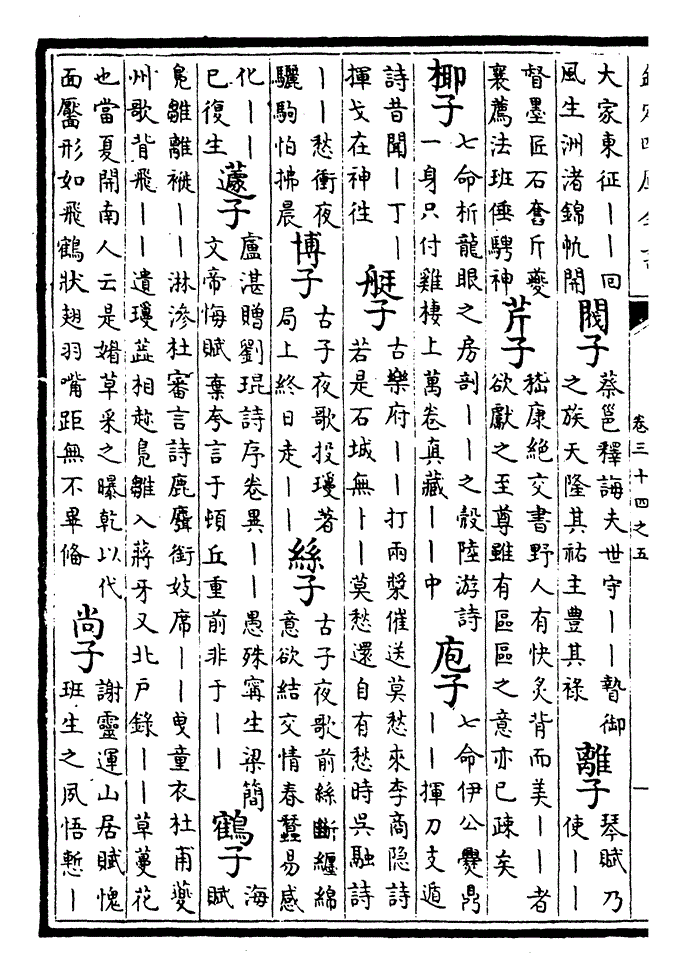 卷三十四之五
一
大家東征｜｜回
風生洲渚錦帆開
閥子
蔡邕釋誨夫世守｜｜贄御
之族天隆其祐主豐其祿
離子
琴賦乃
使｜｜
督墨匠石奮斤夔
襄薦法班倕騁神
芹子
嵇康絕交書野人有快炙背而美｜｜者
欲獻之至尊雖有區區之意亦已疎矣
椰子
七命析龍眼之房剖｜｜之殼陸游詩
一身只付雞棲上萬卷真藏｜｜中
庖子
七命伊公爨鼎
｜｜揮刀支遁
詩昔聞｜丁｜
揮戈在神往
艇子
古樂府｜｜打兩槳催送莫愁來李商隐詩
若是石城無｜｜莫愁還自有愁時吳融詩
｜｜愁衝夜
驪駒怕拂晨
博子
古子夜歌投瓊著
局上終日走｜｜
絲子
古子夜歌前絲斷纏綿
意欲結交情春蠶易感
化｜｜
已復生
蘧子
盧湛贈劉琨詩序卷異｜｜愚殊甯生梁簡
文帝悔賦棄夸言于頓丘重前非于｜｜
鶴子
海
賦
鳬雛離褷｜｜淋滲杜審言詩鹿麛銜妓席｜｜曳童衣杜甫夔
州歌背飛｜｜遺瓊蕋相趂鳬雛入蔣牙又北户錄｜｜草蔓花
也當夏開南人云是媚草采之曝乾以代
面靨形如飛鶴狀翅羽嘴距無不畢備
尚子
謝靈運山居賦愧
班生之夙悟慙｜